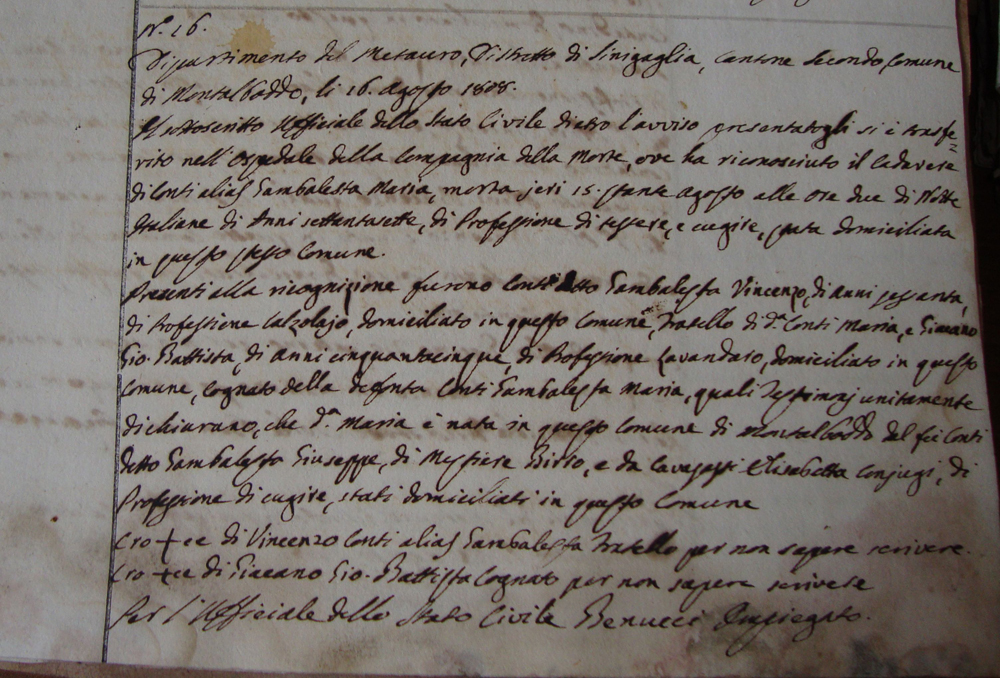 N.° 16.
Dipartimento del Metauro, Distretto di Sinigaglia, Cantone Secondo, Comune
di Montalboddo, li 16. Agosto 1808.
Il sottoscritto Ufficiale dello Stato Civile dietro l'avviso presentatogli si è trasfe=
rito nell'Ospedale della Compagnia della Morte, ove ha riconosciuto il Cadavere
di Conti alias Gambalesta Maria, morta jeri 15. stante Agosto alle Ore due di Notte
Italiane di Anni settantasette, di Professione di tessere, e cugire, stata domiciliata
in questo stesso Comune.
Presenti alla ricognizione furono Conti detto Gambalesta Vincenzo, di Anni sessanta,
di Professione Calzolajo, domiciliato in questo Comune, Fratello di d.ª Conti Maria, e
Gio. Battista, di Anni cinquantacinque, di Professione Lavandaro, domiciliato in questo
Comune, Cognato della defonta Conti Gambalesta Maria, quali Testimonj unitamente
dichiarano, che d.ª Maria è nata in questo Comune di Montalboddo del fù Conti
detto Gambalesta Giuseppe, di Mestiere Birro, e da Elisabetta Conjugi, di
Professione di cugire, stati domiciliati in questo Comune
Cro + ce di Vincenzo Conti alias Gambalesta Fratello per non sapere scrivere.
Cro + ce di Gio. Battista Cognato per non sapere scrivere
Per l'Ufficiale dello Stato Civile Benucci Impiegato.